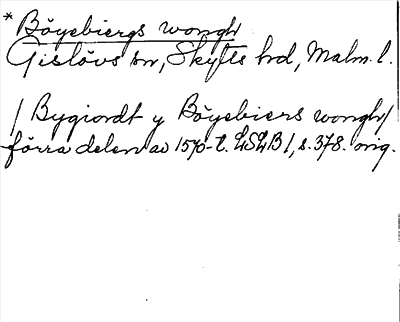 *Böyebiergs wongh
Gislövs sn, Skytts hd, Malm. l.
/ Bygiordt y Böyebiers wongh/
förra delen av 1570-t. LSLB 1, s. 378. orig.